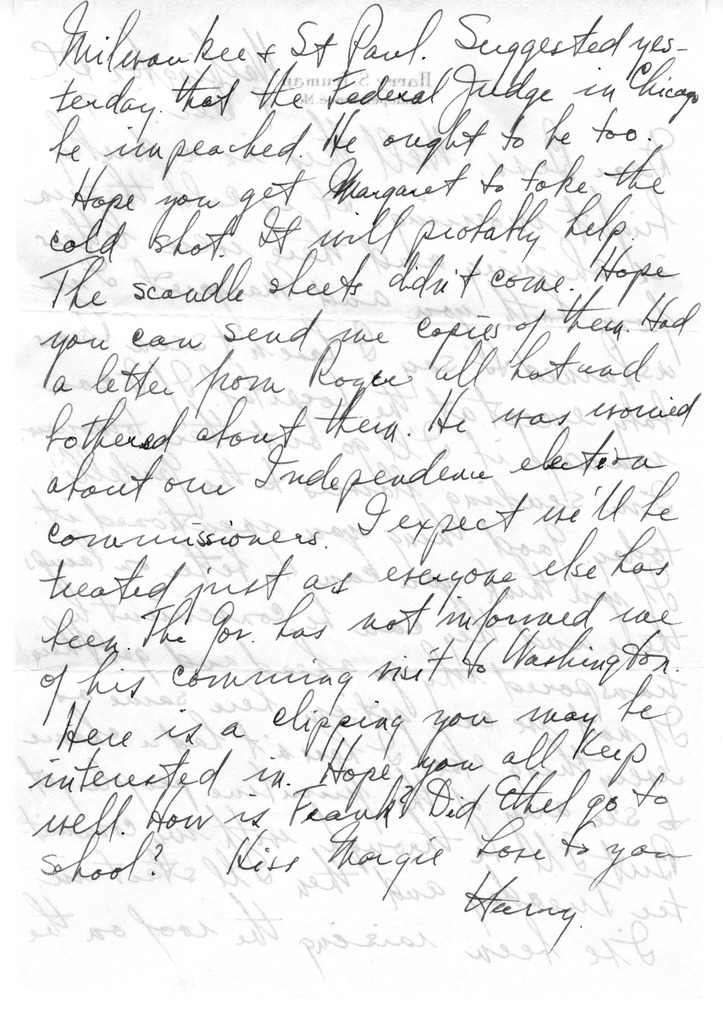 Milwaukee & St Paul. Suggested yes-
terday that the Federal Judge in Chicago
be impeached. He ought to be too.
Hope you get Margaret to take the
cold shot. It will probably help.
The scandle sheets didn't come. Hope
you can send me copies of them. Had
a letter from Roger all hot and
bothered about them. He was worried
about our Independence election
commissioners. I expect we'll be
treated just as everyone else has
been. The Gov. has not informed me
of his comming visit to Washington.
Here is a clipping you may be
interested in. Hope you all keep
well. How is Frank? Did Ethel go to
school? Kiss Margie Love to you
Harry.